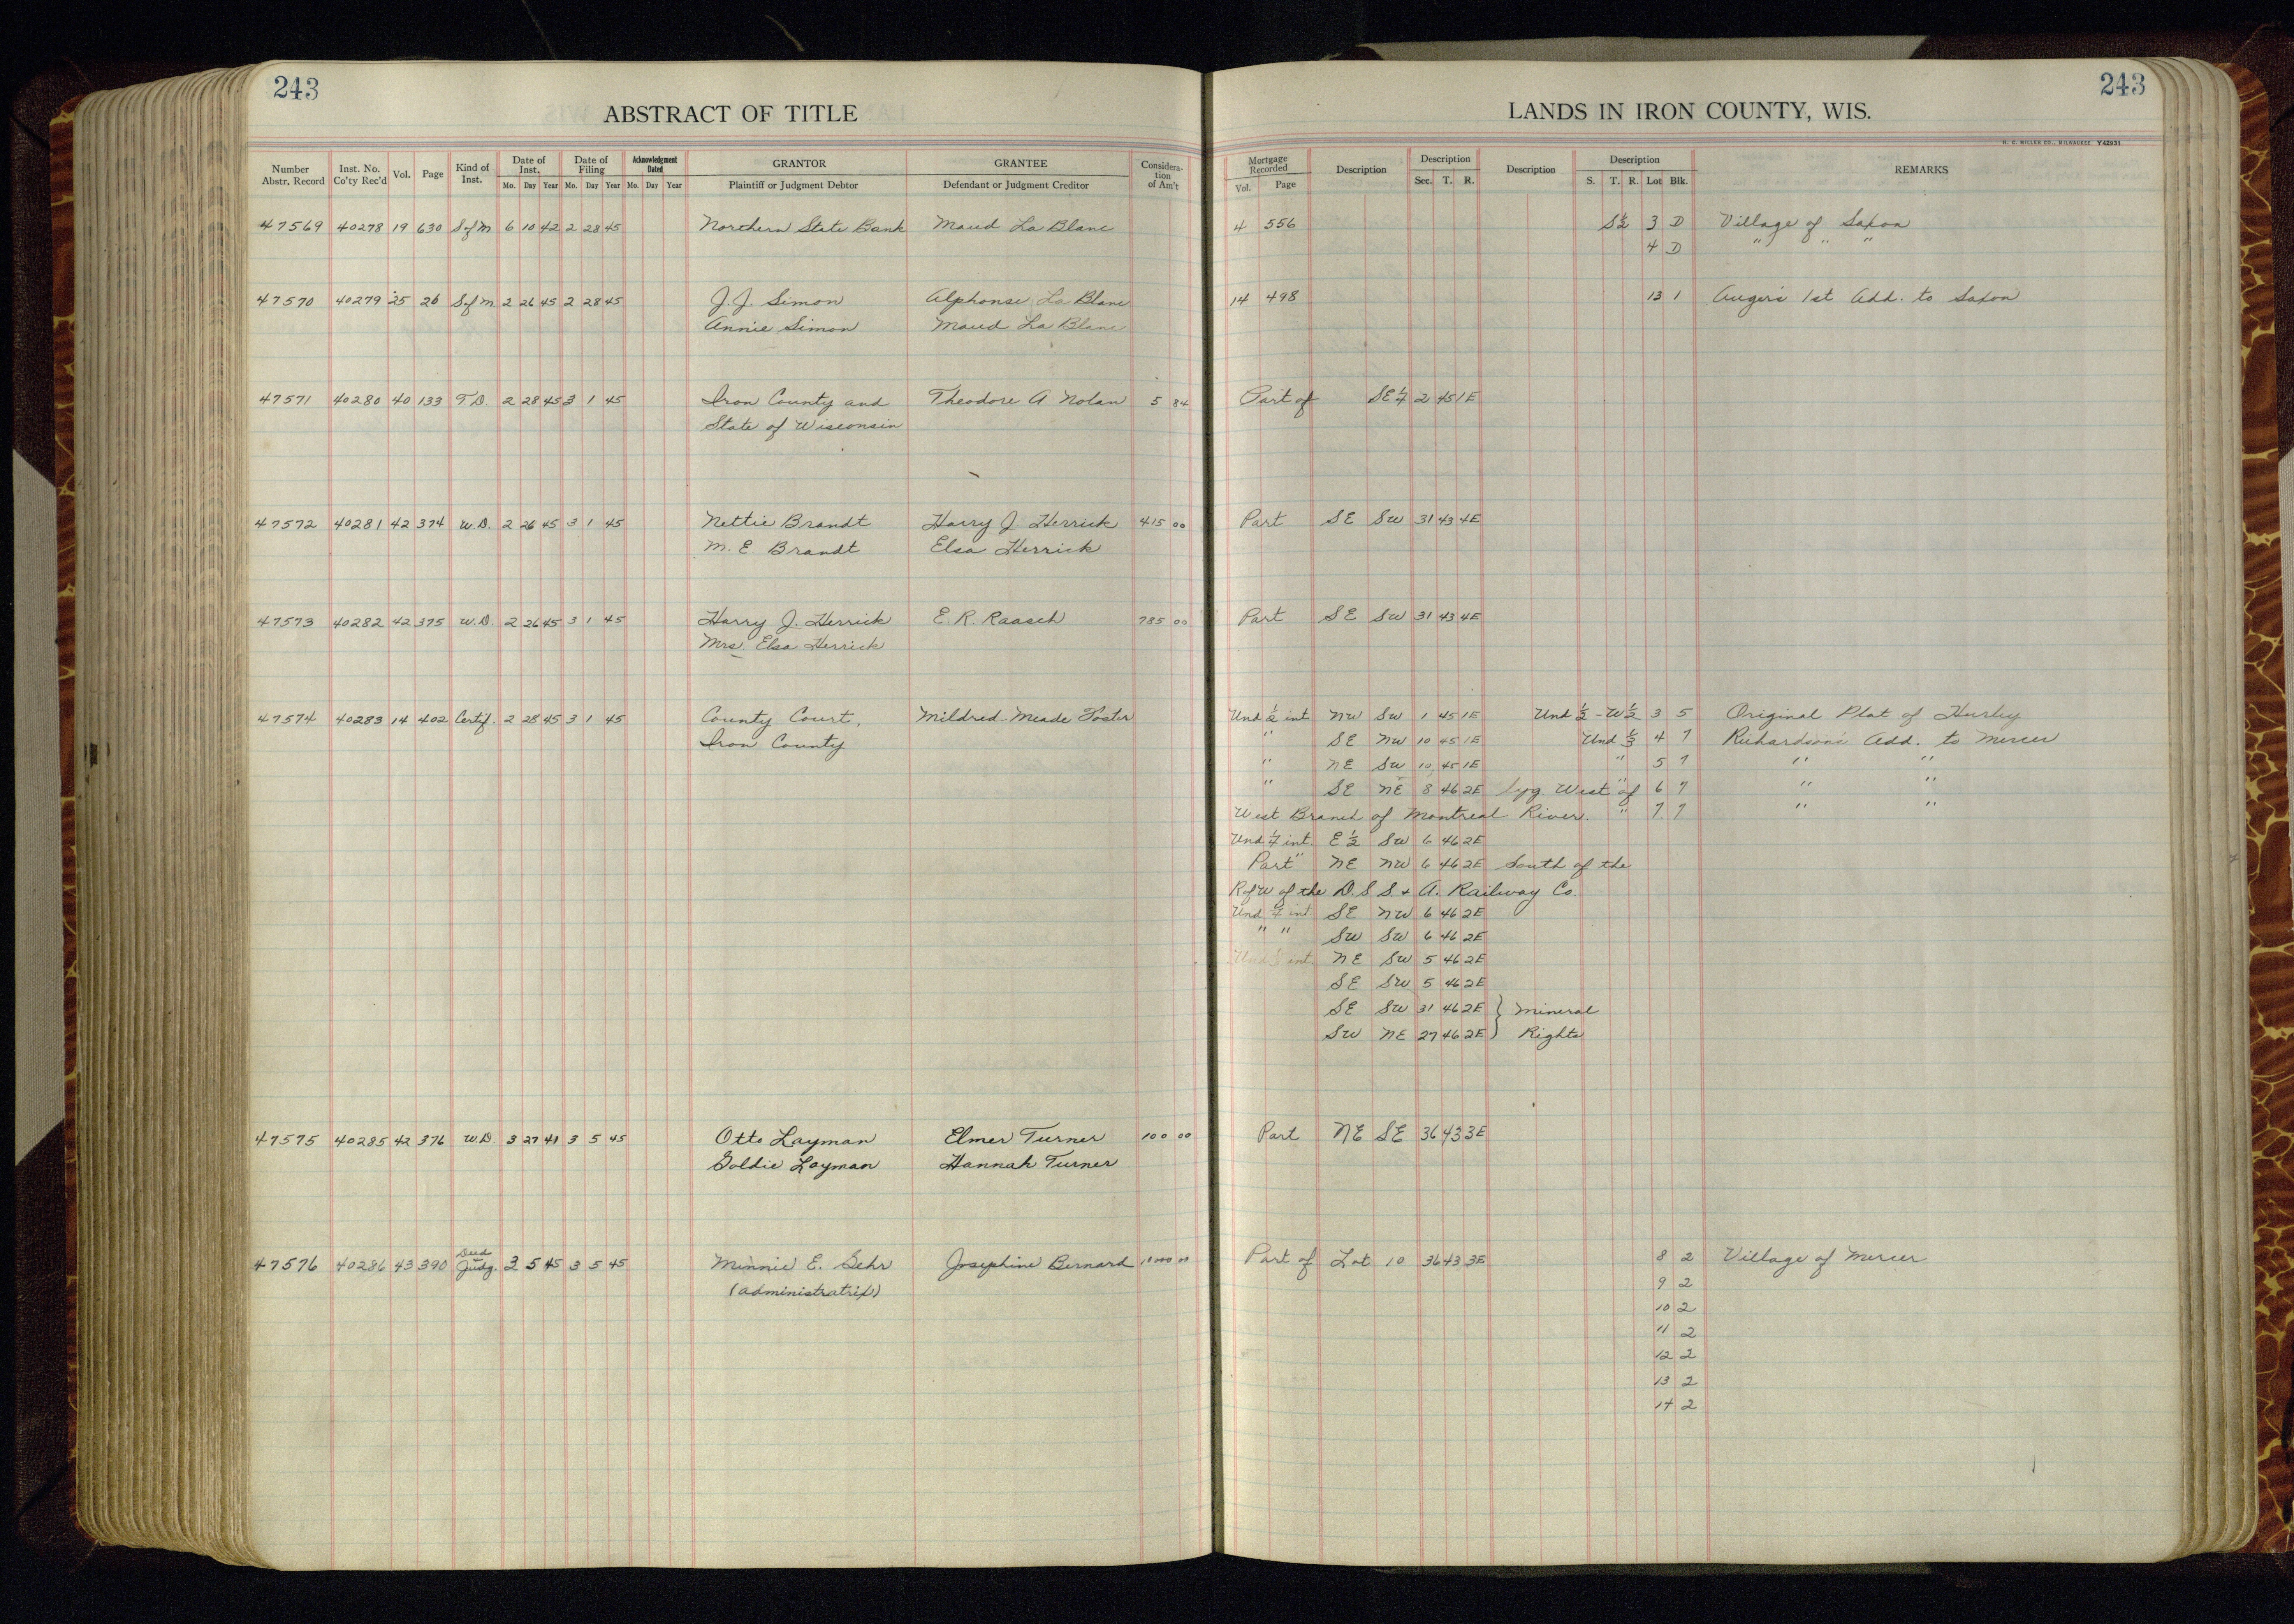 243
ABSTRACT OF TITLE
Number Abstr. Record Inst. No. Co'ty Rec'd Vol. Page Kind of Inst. Date of Inst. Mo. Day Year Date of Filing Mo. Day Year Acknowledgment Dated Mo. Day Year GRANTOR Plaintiff or Judgment Debtor GRANTEE Defendant or Judgment Creditor Consideration of Am't
47569 40278 19 630 S of M 6 10 42 2 28 45 Northern State Bank Maud La Blanc
47570 40279 25 26 S of M. 2 26 45 2 28 45 J. J. Simon Alphonse La Blanc
Annie Simon Maud La Blanc
47571 40280 40 133 T. D. 2 28 45 3 1 45 Iron County and Theodore A Nolan 5 84
State of Wisconsin
47572 40281 42 374 W. D. 2 26 45 3 1 45 Nettie Brandt Harry J. Herrick 415 00
M. E. Brandt Elsa Herrick
47573 40282 42 375 W. D. 2 26 45 3 1 45 Harry J. Herrick E. R. Raasch 785 00
Mrs. Elsa Herrick
47574 40283 14 402 Certif. 2 28 45 3 1 45 County Court, Mildred Meade Foster
Iron County
47575 40285 42 376 W. D. 3 27 41 3 5 45 Otto Layman Elmer Turner 100 00
Goldie Layman Hannah Turner
Deed
47576 40286 43 390 Judg. 3 5 45 3 5 45 Minnie E. Gehr Josephine Bernard 1000 00
(administratrix)
243
LANDS IN IRON COUNTY, WIS.
H. C. MILLER CO., MILWAUKEE Y42031
Mortgage Recorded Vol. Page Description Description Sec. T. R. Description Description S. T. R. Lot Blk. REMARKS
4 556 S½ 3 D Village of Saxon
4 D " " "
14 498 13 1 Auger's 1st Add. to Saxon
Part of SE¼ 2 45 1E
Part SE SW 31 43 4E
Part SE SW 31 43 4E
Und ½ int NW SW 1 45 1E Und ½ - W½ 3 5 Original Plat of Hurley
" SE NW 10 45 1E Und ⅓ 4 7 Richardson's Add. to Mercer
" NE SW 10 45 1E " 5 7 " "
" SE NE 8 46 2E Lyg West of " 6 7 " "
West Branch of Montreal River. " 7 7 " "
Und ¼ int. E½ SW 6 46 2E
Part " NE NW 6 46 2E South of the
R of W of the D. S. S. & A. Railway Co.
Und ¼ int SE NW 6 46 2E
" " SW SW 6 46 2E
Und int NE SW 5 46 2E
SE SW 5 46 2E
SE SW 31 46 2E } Mineral
SW NE 27 46 2E } Rights
Part NE SE 36 43 3E
Part of Lot 10 36 43 3E 8 2 Village of Mercer
9 2
10 2
11 2
12 2
13 2
14 2